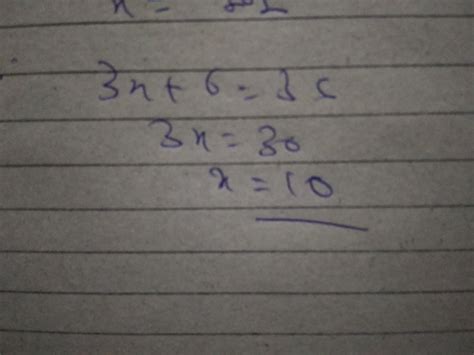 x =
3x + 6 = 36
3x = 30
x = 10